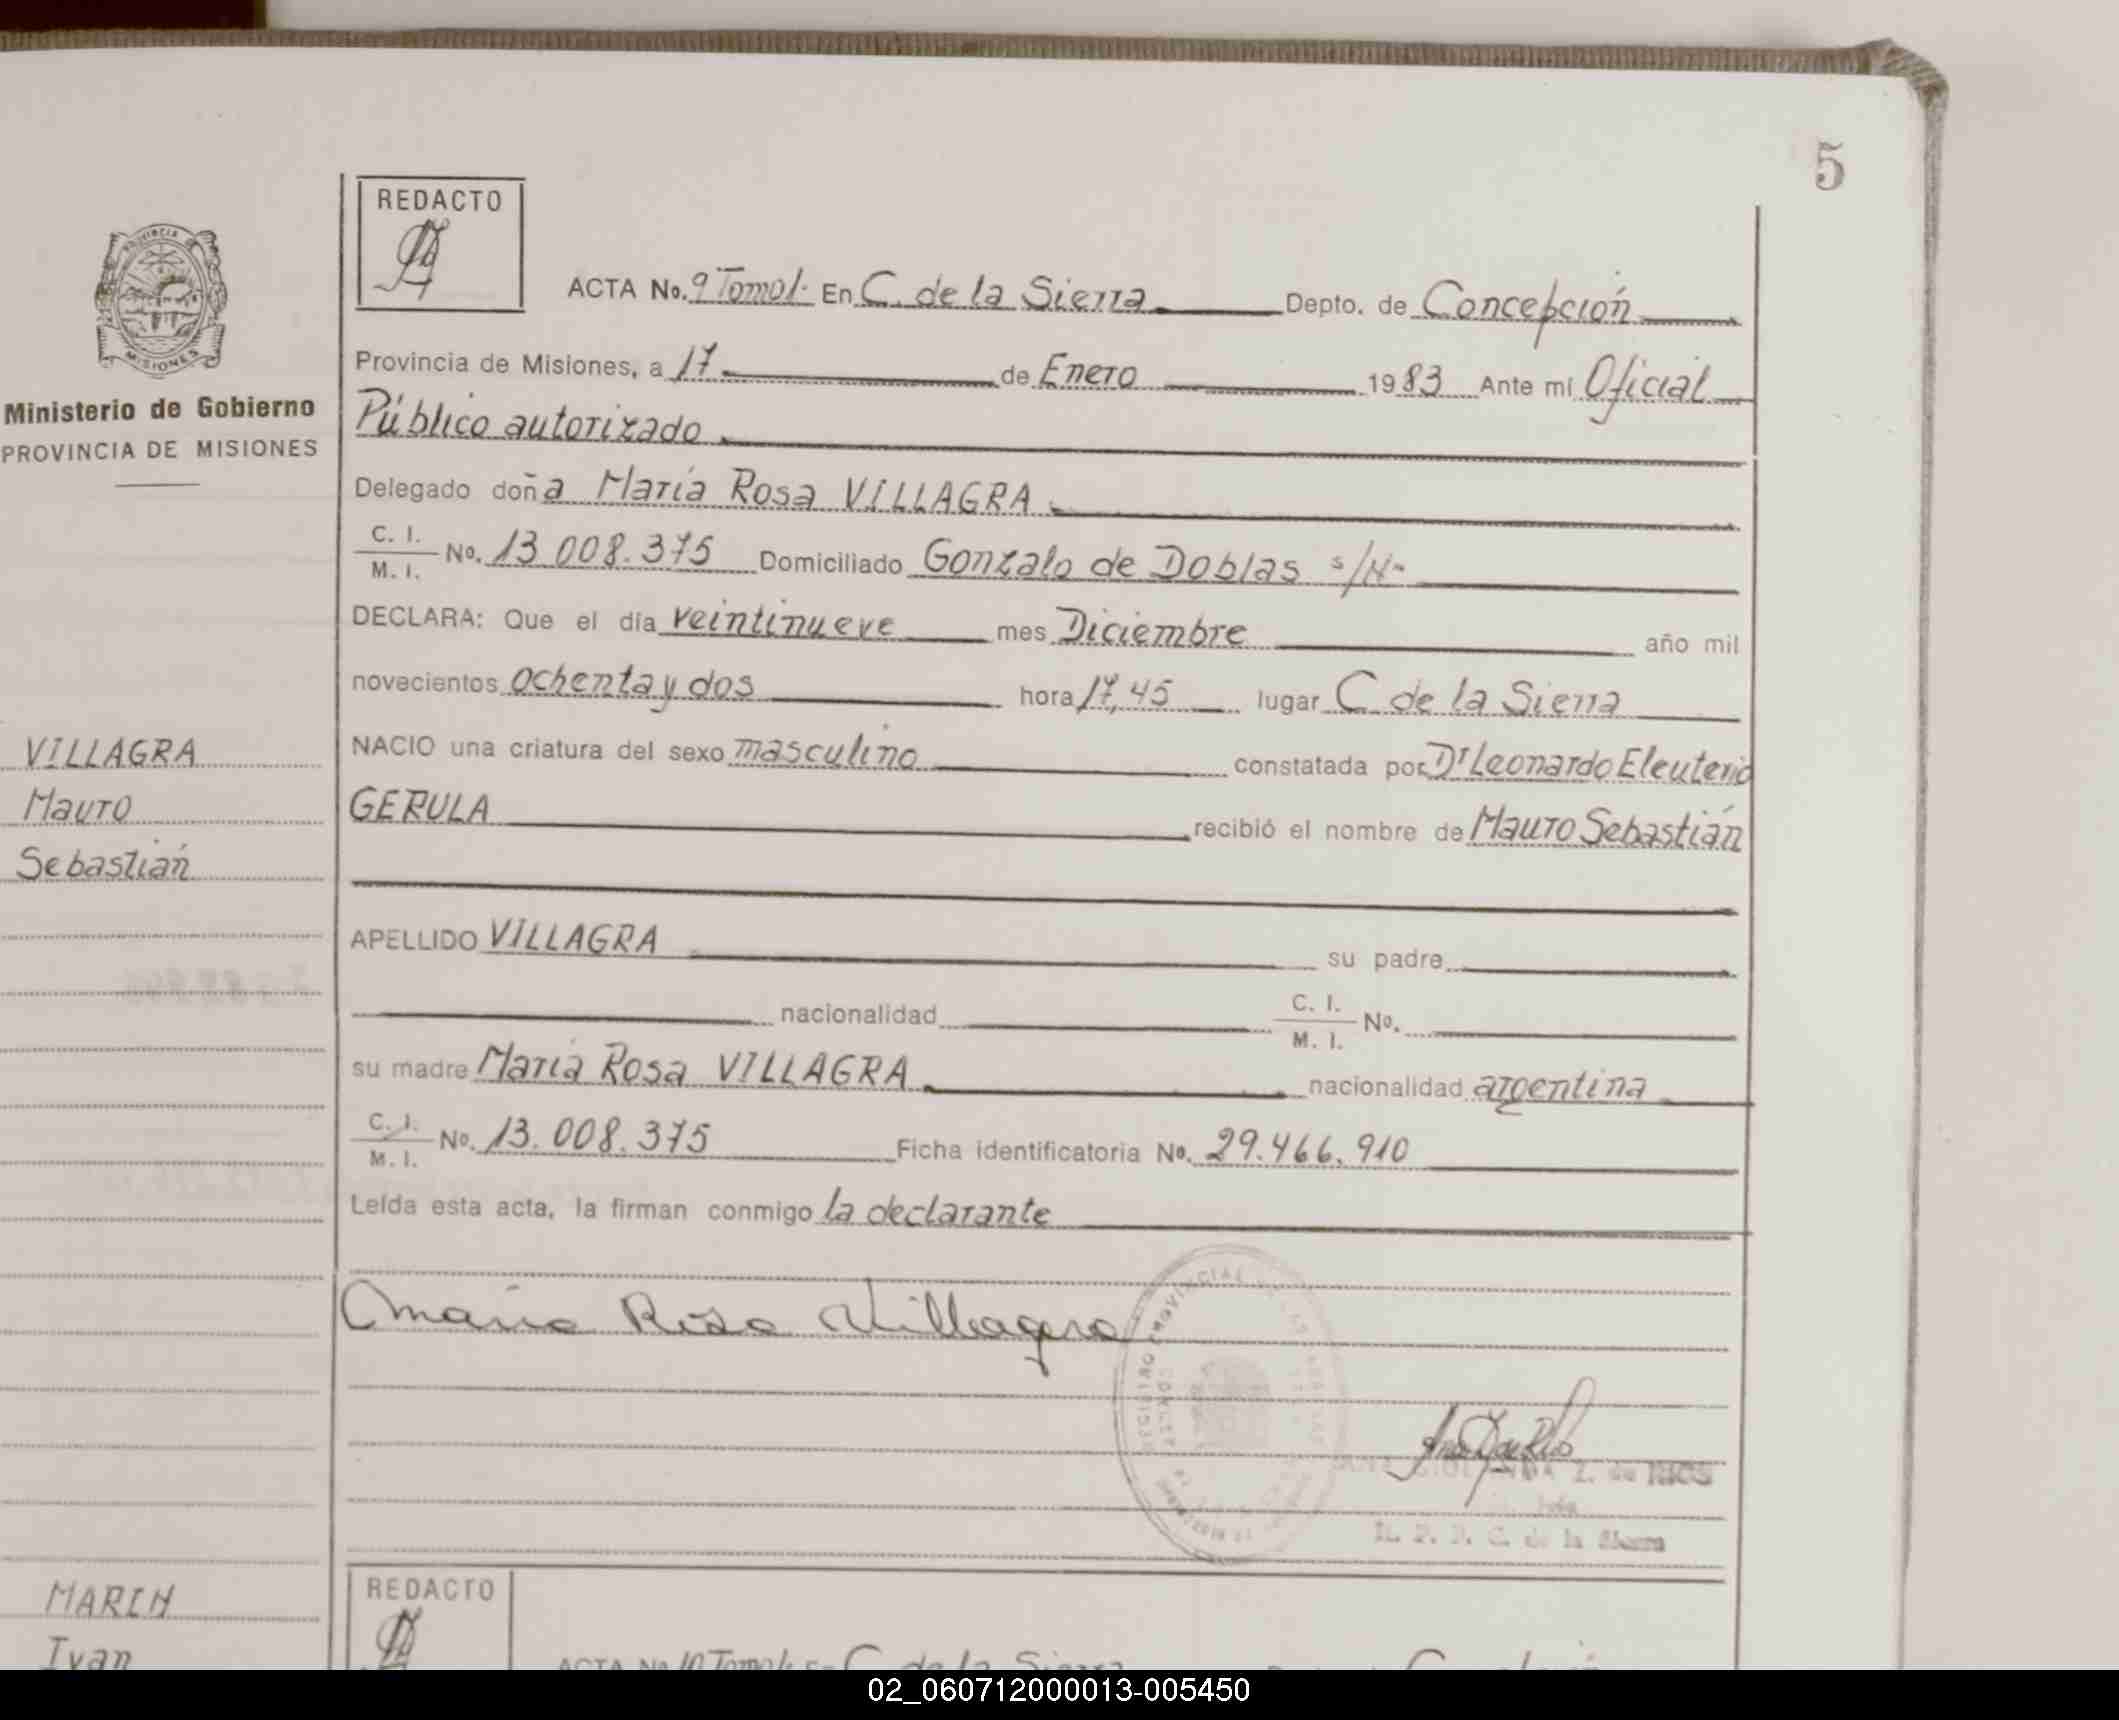 5
REDACTO
ACTA No. 9 Tomo 1. En C. de la Sierra Depto. de Concepción
Provincia de Misiones, a 17 de Enero 1983 Ante mí Oficial
Público autorizado
Delegado doña María Rosa VILLAGRA
C. I. / M. I. No. 13.008.375 Domiciliado Gonzalo de Doblas s/Nº
DECLARA: Que el día veintinueve mes Diciembre año mil
novecientos ochenta y dos hora 17,45 lugar C. de la Sierra
NACIO una criatura del sexo masculino constatada por Dr Leonardo Eleuterio
GERULA recibió el nombre de Mauro Sebastián
APELLIDO VILLAGRA su padre
nacionalidad C. I. / M. I. No.
su madre María Rosa VILLAGRA nacionalidad argentina
C. I. / M. I. No. 13.008.375 Ficha identificatoria No. 29.466.910
Leída esta acta, la firman conmigo la declarante
Maria Rosa Villagra
REGISTRO PROVINCIAL DE LAS PERSONAS
Z. de RIOS
C. de la Sierra
PROVINCIA DE
MISIONES
Ministerio de Gobierno
PROVINCIA DE MISIONES
VILLAGRA
Mauro
Sebastián
MARIN
Ivan
REDACTO
ACTA No. 10 Tomo 1. En C. de la Sierra
02_060712000013-005450